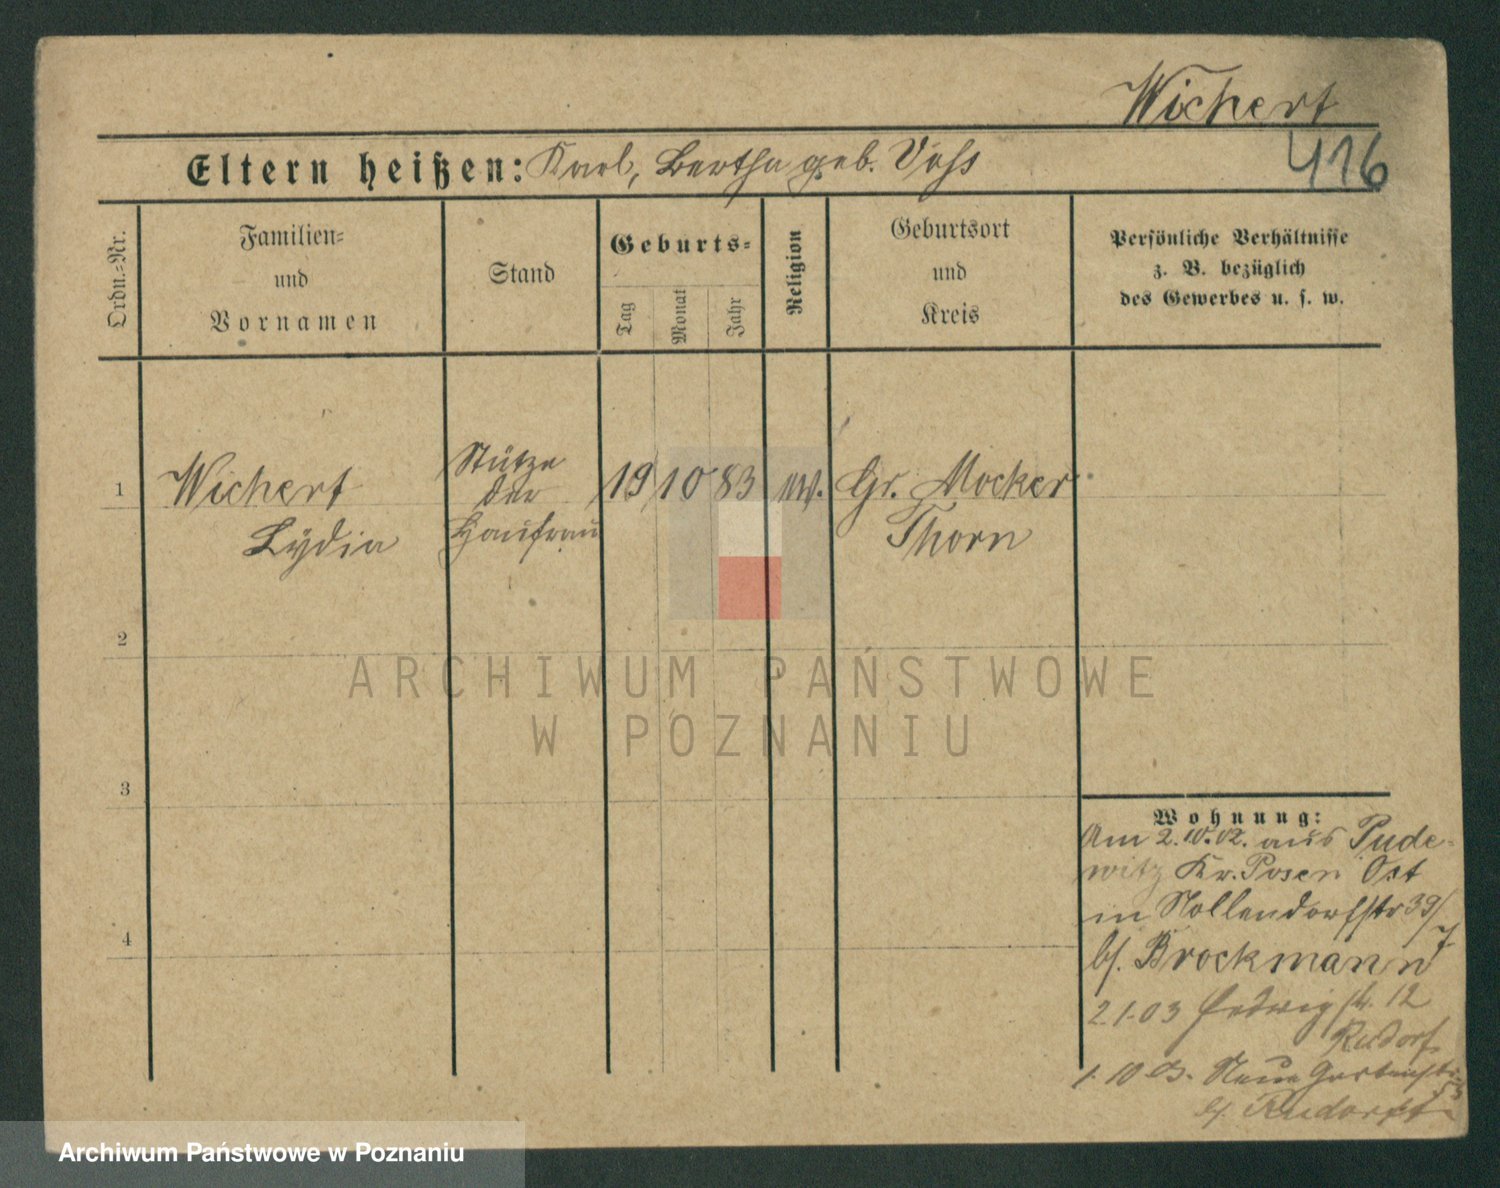 Wichert
416
Eltern heißen: Karl, Bertha geb. Voss
Ordn.=Nr.
Familien=
und
Vornamen
Stand
Geburts=
Tag
Monat
Jahr
Religion
Geburtsort
und
Kreis
Persönliche Verhältnisse
z. B. bezüglich
des Gewerbes u. s. w.
1
Wichert
Lydia
Stütze
der
Hausfrau
19 10 83
Gr. Mocker
Thorn
2
3
4
Wohnung:
Am 2.10.02. aus Pude-
witz Kr. Posen Ost
in Nollendorfstr 39/
7
b/. Brockmann
2.1.03 Hedwigstr. 12
Rudorf
1.10.03. Neue Gartenstr.
b/. Rudorff
ARCHIWUM PAŃSTWOWE
W POZNANIU
Archiwum Państwowe w Poznaniu